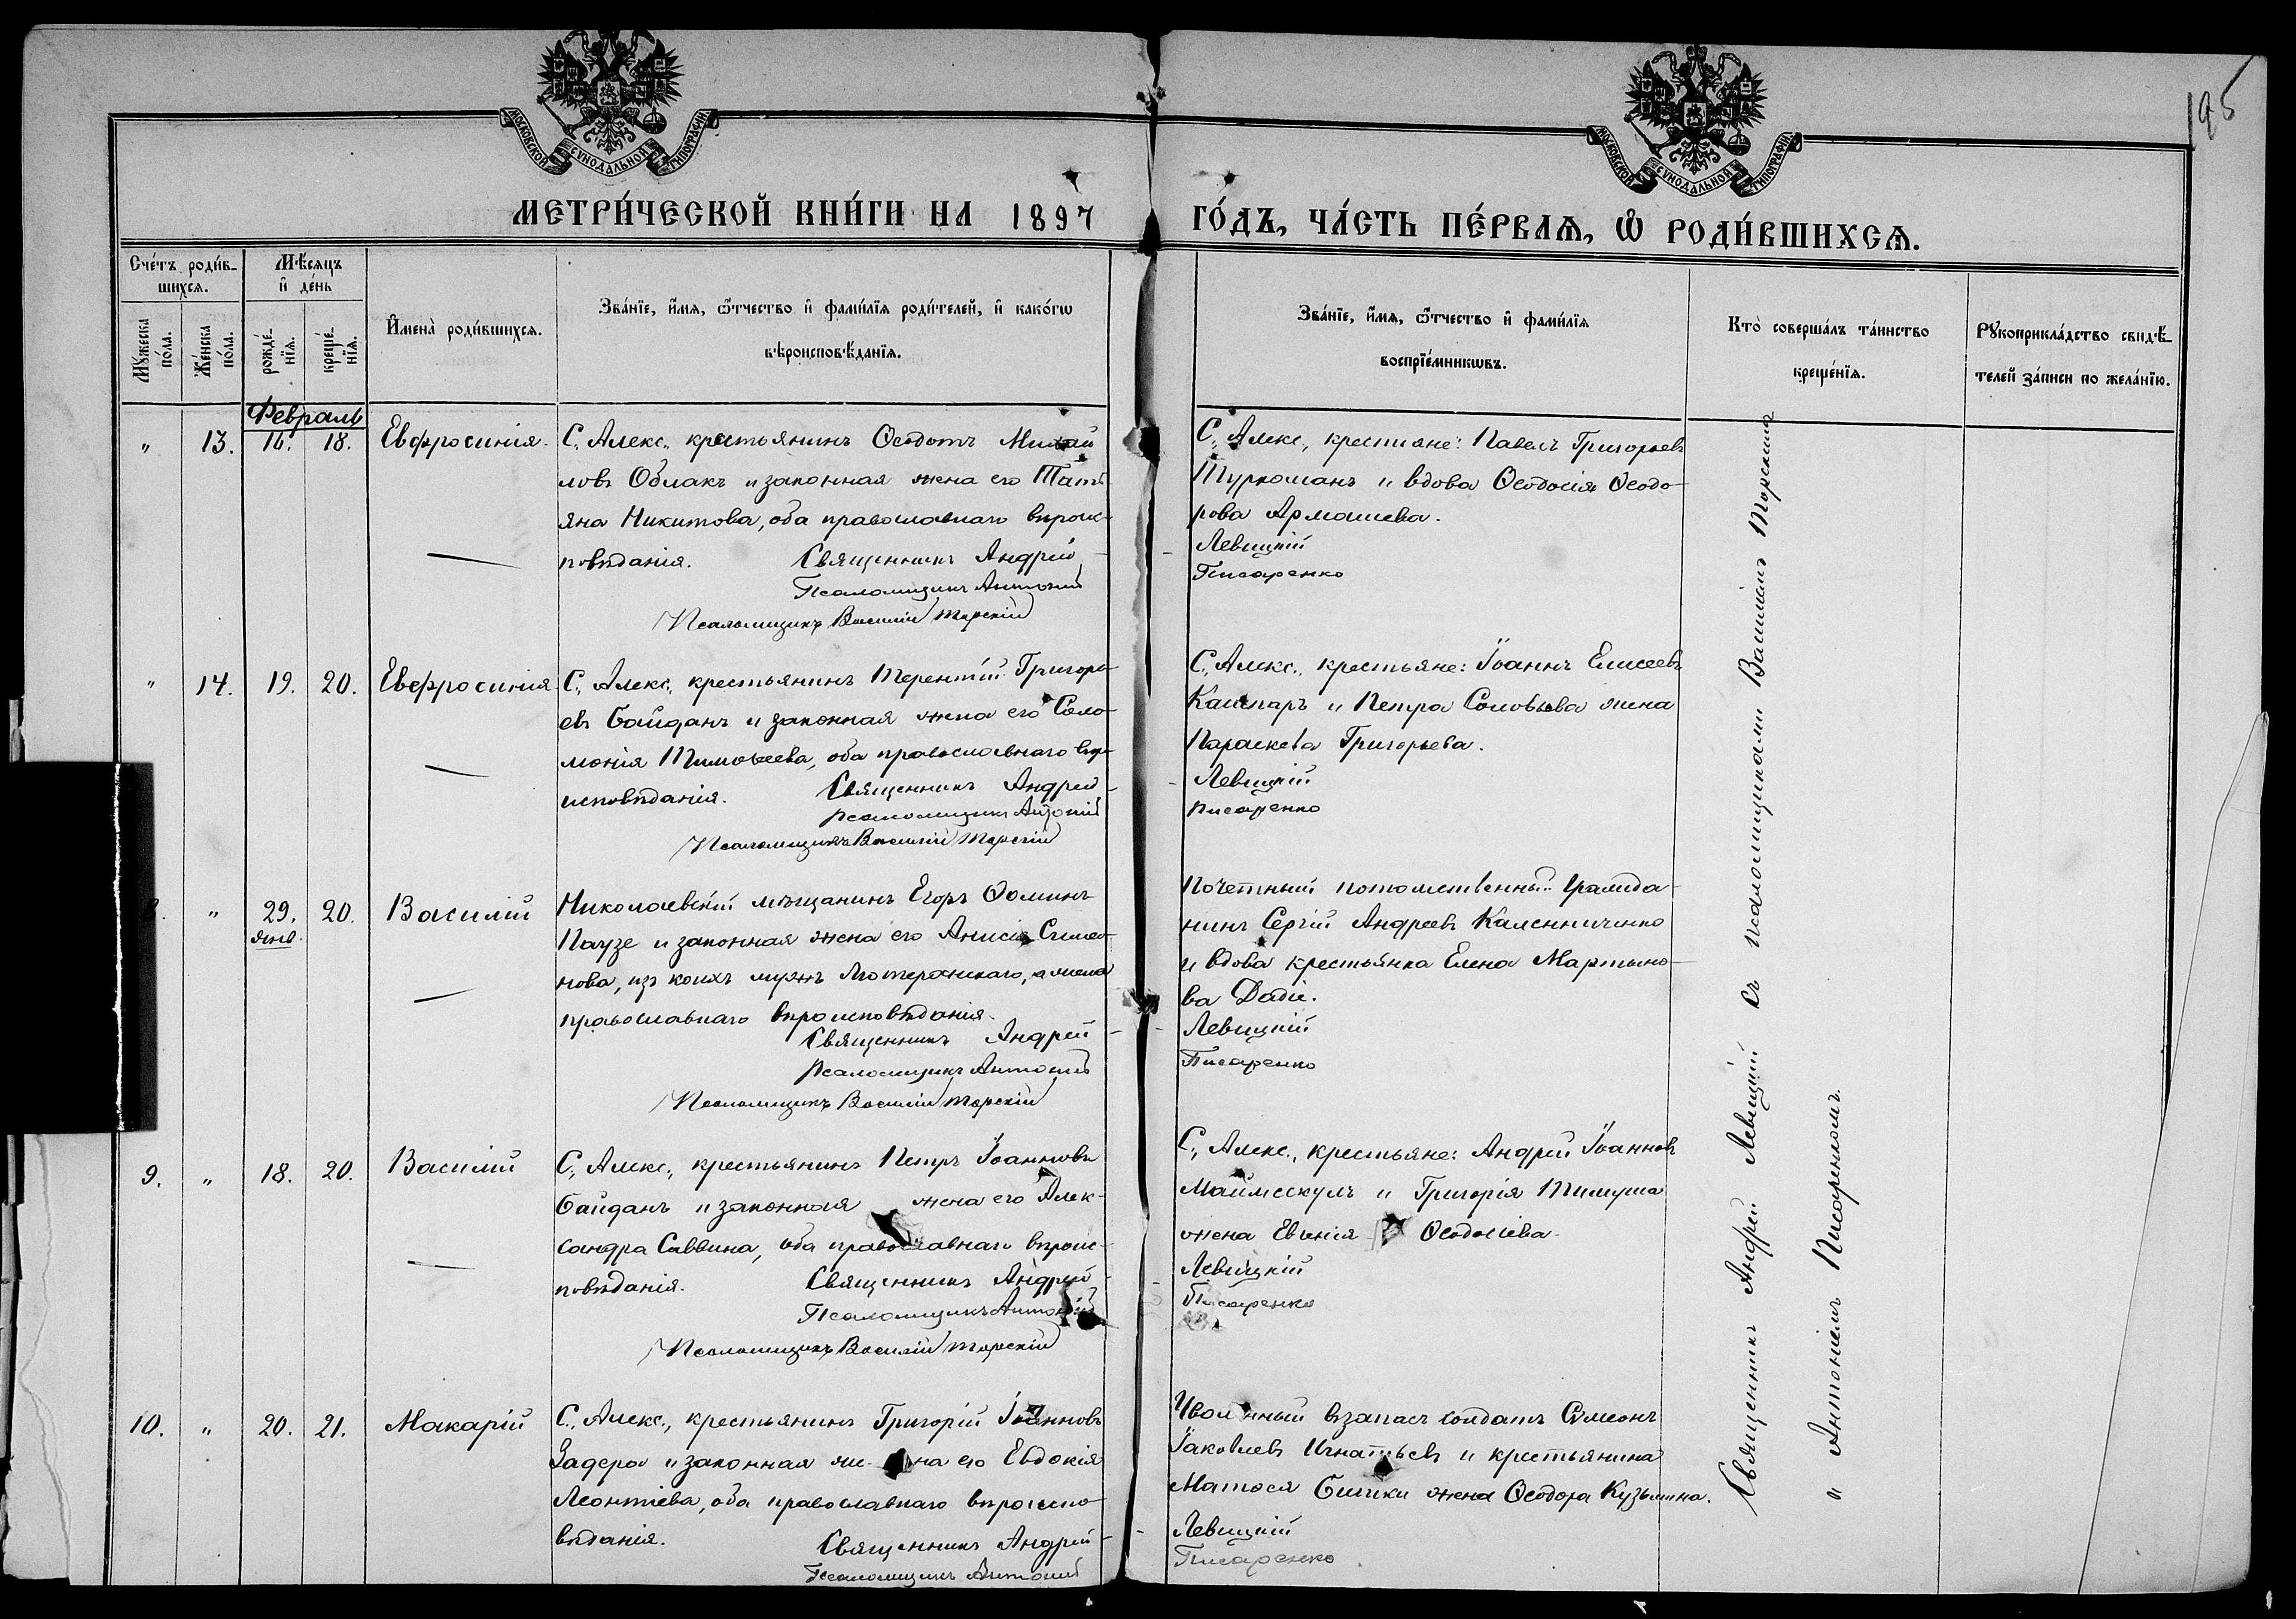 195
МОСКОВСКОЙ СУНОДАЛЬНОЙ ТИПОГРАФІИ
МОСКОВСКОЙ СУНОДАЛЬНОЙ ТИПОГРАФІИ
МЕТРИ́ЧЕСКОЙ КНИ́ГИ НА 1897 ГО́ДЪ, ЧА́СТЬ ПЕ́РВАѦ, Ѽ РОДИ́ВШИХСѦ.
Сче́тъ роди́в-
шихсѧ.
Мꙋ́жеска
по́ла.
Же́нска
по́ла.
Мѣ́сѧцъ
и҆ де́нь
рожде́-
нїѧ.
креще́-
нїѧ.
И҆мена̀ роди́вшихсѧ.
Зва́нїе, и҆́мѧ, ѻ҆́тчество и҆ фами́лїѧ роди́телей, и҆ како́гѡ
вѣроисповѣ́данїѧ.
Зва́нїе, и҆́мѧ, ѻ҆́тчество и҆ фами́лїѧ
воспрїе́мникѡвъ.
Кто̀ соверша́лъ та́инство
креще́нїѧ.
Рꙋкоприкла́дство свидѣ́-
телей за́писи по жела́нїю.
Февраль
" 13. 16. 18. Евфросинія.
С. Алекс., крестьянинъ Ѳеодотъ Михай
ловъ Облакъ и законная жена его Тать
яна Никитова, оба православнаго вѣроис-
повѣданія. Священникъ Андрей
Псаломщикъ Антоній
Псаломщикъ Василій Торскій
С. Алекс., крестияне: Павелъ Григорьевъ
Туркоманъ и вдова Ѳеодосія Ѳеодо-
рова Армашева.
Левицкій
Писаренко
" 14. 19. 20. Евфросинія
С. Алекс., крестьянинъ Терентій Григорь-
евъ Байданъ и законная жена его Соло-
монія Тимоѳеева, оба православнаго вѣро-
исповѣданія. Священникъ Андрей
Псаломщикъ Антоній
Псаломщикъ Василій Торскій
С. Алекс., крестьяне: Іоаннъ Елисеевъ
Кашпаръ и Петра Соловьева жена
Параскева Григорьева.
Левицкій
Писаренко
" 29. янв. 20. Василій
Николаевскій мѣщанинъ Егоръ Ѳоминъ
Паузе и законная жена его Анисія Симео-
нова, изъ коихъ мужъ Лютеранскаго, а жена
православнаго вѣроисповѣданія.
Священникъ Андрей
Псаломщикъ Антоній
Псаломщикъ Василій Торскій
Почетный потомственный гражда-
нинъ Сергій Андреевъ Каленниченко
и вдова крестьянка Елена Мартыно-
ва
Левицкій
Писаренко
9. " 18. 20. Василій
С. Алекс., крестьянинъ Петръ Іоанновъ
Байданъ и законная жена его Алек-
сандра Саввина, оба православнаго вѣроис-
повѣданія. Священникъ Андрей
Псаломщикъ Антоній
Псаломщикъ Василій Торскій
С. Алекс., крестьяне: Андрей Іоанновъ
Маймескулъ и Григорія Тимуша
жена Евгенія Ѳеодосіева.
Левицкій
Писаренко
10. " 20. 21. Макарій
С. Алекс., крестьянинъ Григорій Іоанновъ
Задера и законная жена его Евдокія
Леонтіева, оба православнаго вѣроиспо-
вѣданія. Священникъ Андрей
Псаломщикъ Антоній
Уволенный взапасъ солдатъ Сѵмеонъ
Іаковлевъ Игнатьевъ и крестьянина
Матѳея жена Ѳеодора Кузьмина.
Левицкій
Писаренко
Священникъ Андрей Левицкій съ псаломщиками Василіемъ Торскимъ
и Антоніемъ Писаренкомъ.